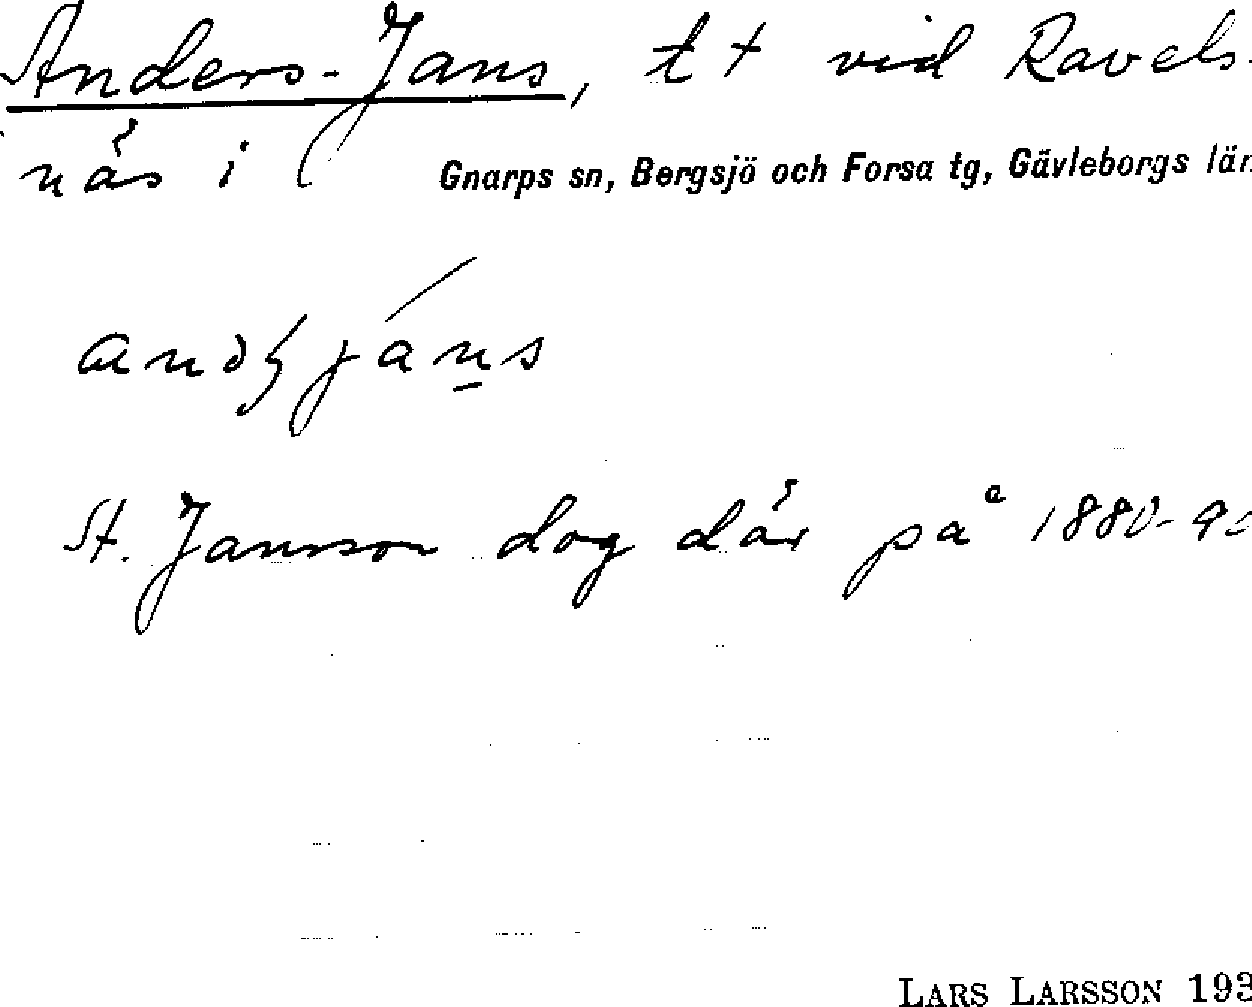 Anders-Jans, t + vid Ravels-
näs i Gnarps sn, Bergsjö och Forsa tg, Gävleborgs län
A. Jansson dog där på 1880-90
LARS LARSSON 193